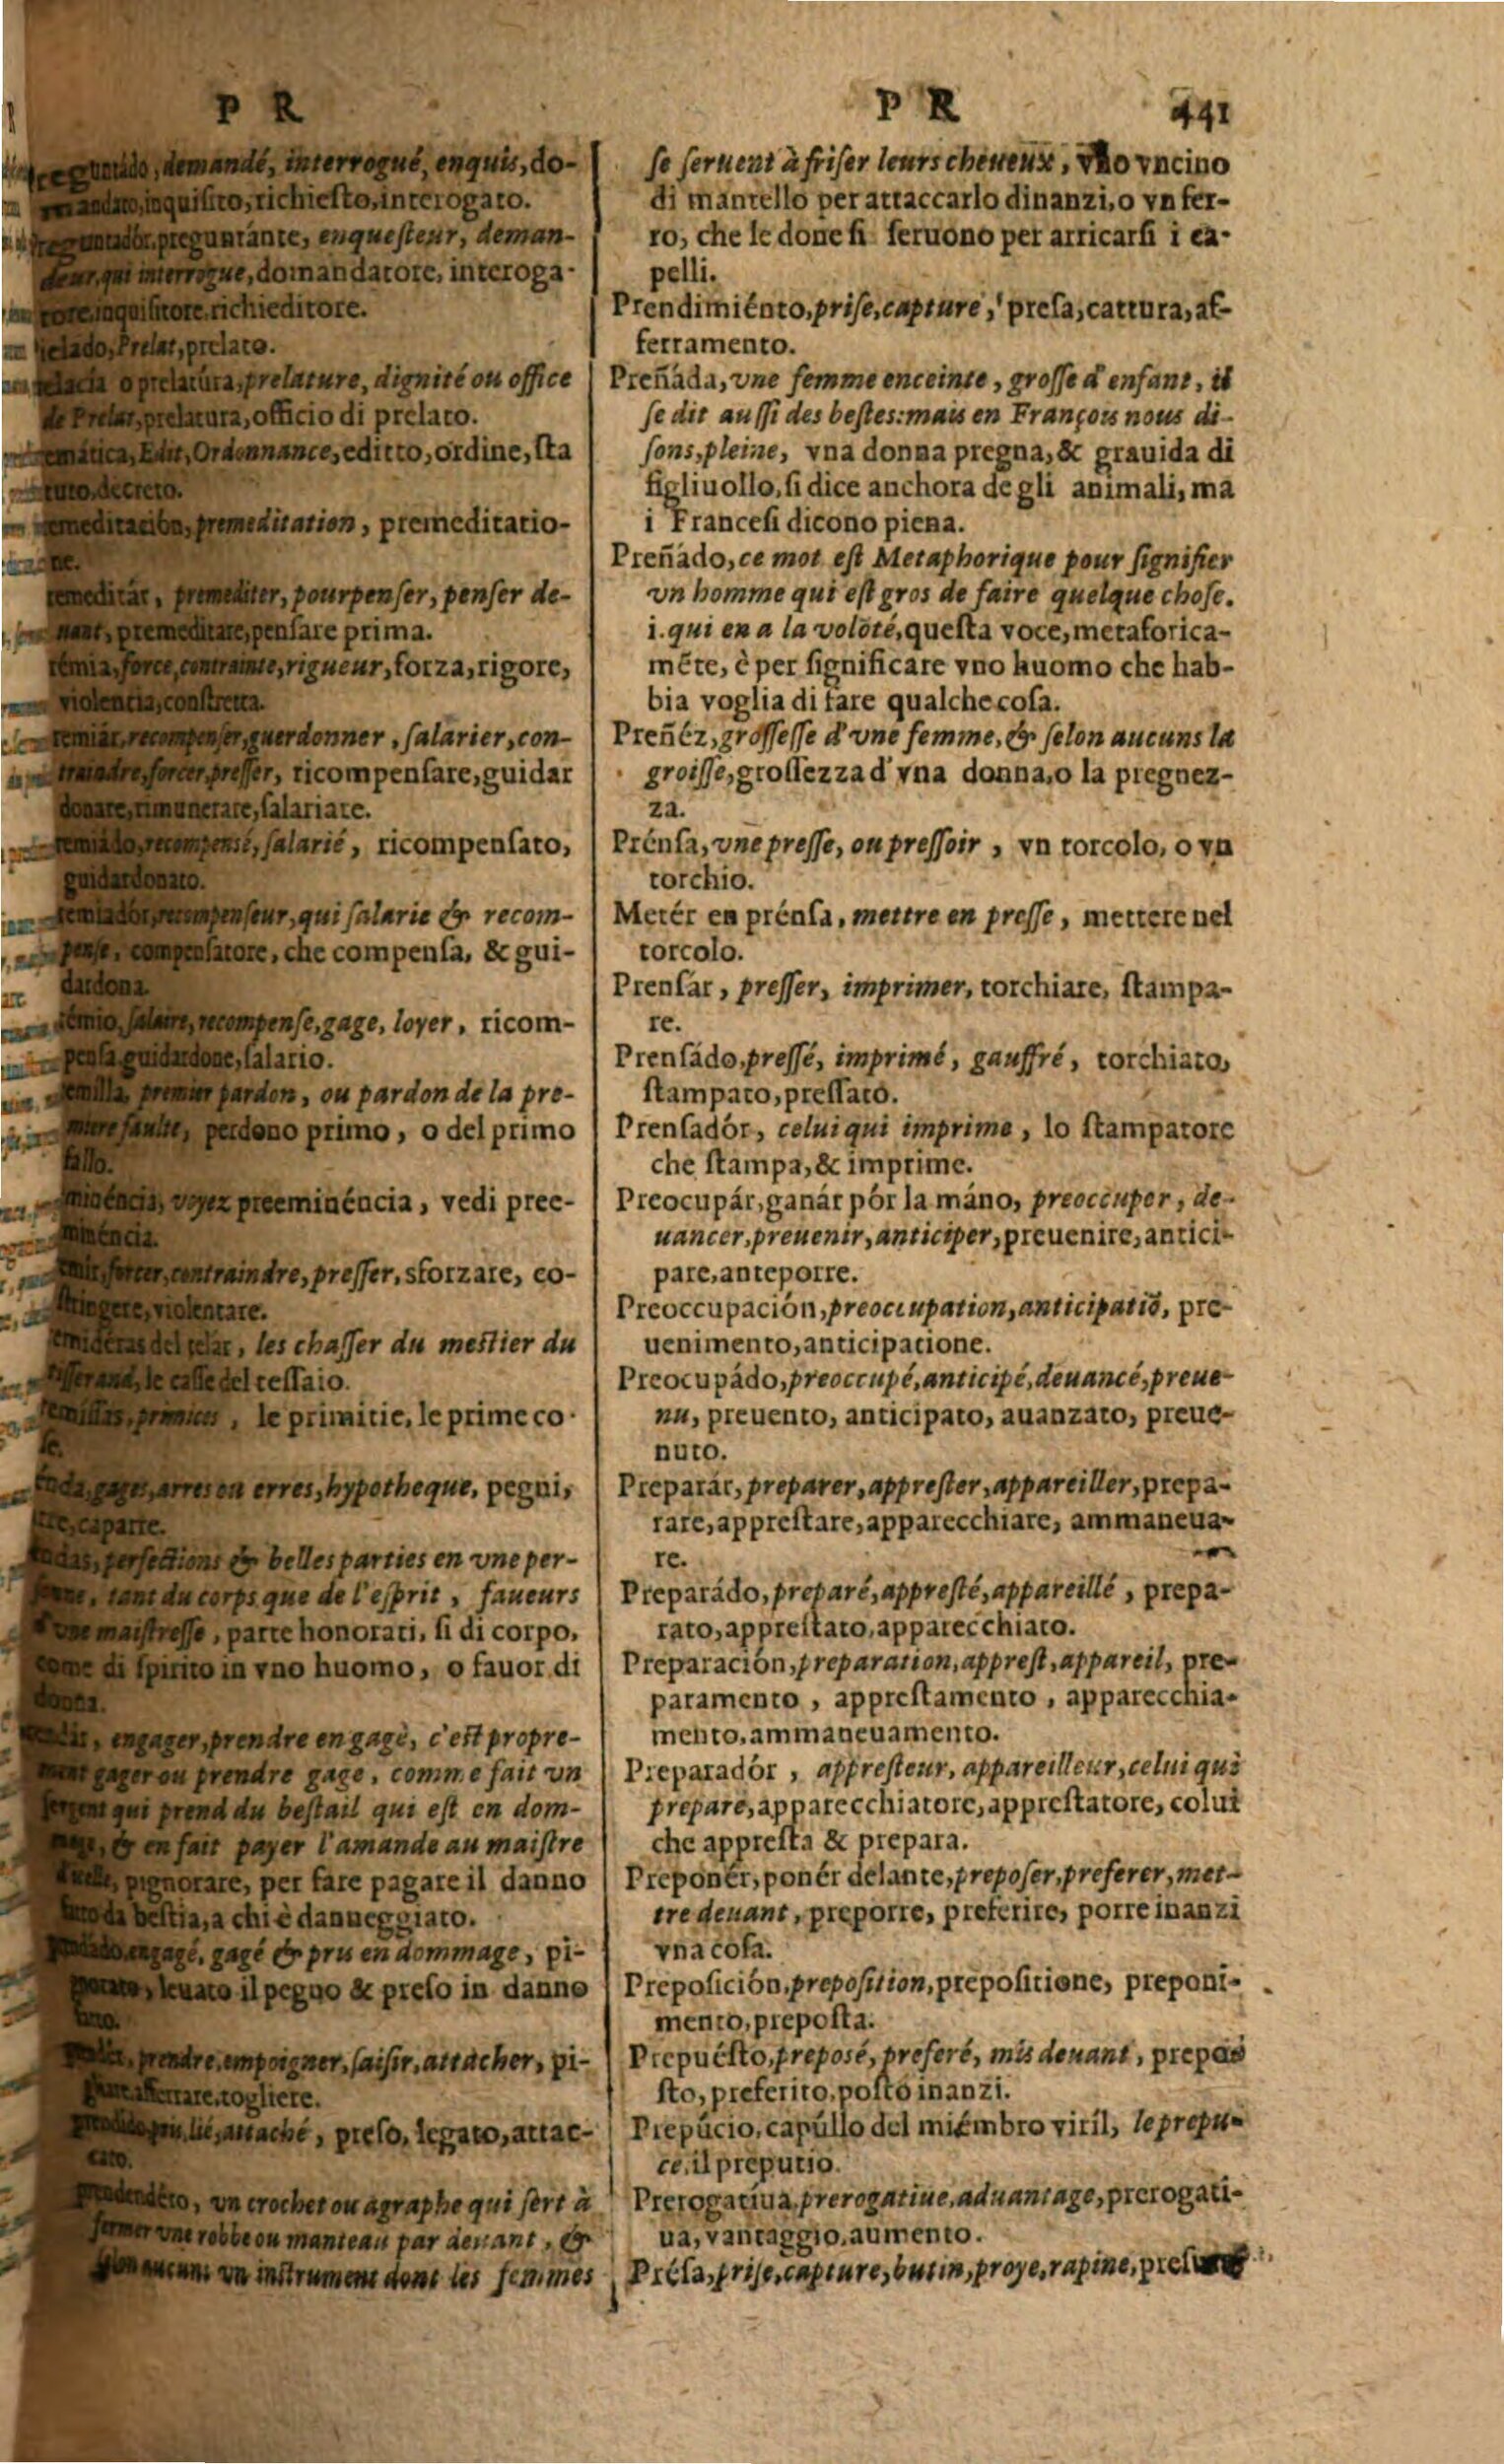 P R
demandé, interrogué, enquis, do-
inquisito, richiesto, interogato.
preguntánte, enquesteur, deman-
deur, qui interrogue, domandatore, interoga-
inquisitore, richieditore.
Prelat, prelato.
o prelatúra, prelature, dignité ou office
de Prelat, prelatura, officio di prelato.
Edit, Ordonnance, editto, ordine, sta
tuto, decreto.
premeditation, premeditatio-
ne.
premediter, pourpenser, penser de-
premeditare, pensare prima.
force, contrainte, rigueur, forza, rigore,
violentia, constretta.
recompenser, guerdonner, salarier, con-
traindre, forcer, presser, ricompensare, guidar
donare, rimunerare, salariare.
recompensé, salarié, ricompensato,
guidardonato.
recompenseur, qui salarie & recom-
pense, compensatore, che compensa, & gui-
dardona.
salaire, recompense, gage, loyer, ricom-
pensa guidardone, salario.
premier pardon, ou pardon de la pre-
miere faulte, perdono primo, o del primo
fallo.
voyez preeminéncia, vedi pree-
minéncia.
forcer, contraindre, presser, sforzare, co-
stringere, violentare.
del telar, les chasser du mestier du
le casse del tessaio.
primices, le primitie, le prime co-
se.
gages, arres ou erres, hypotheque, pegni,
caparre.
perfections & belles parties en vne per-
sonne, tant du corps que de l'esprit, faueurs
d'vne maistresse, parte honorati, si di corpo,
come di spirito in vno huomo, o fauor di
donna.
engager, prendre en gage, c'est propre-
ment gager ou prendre gage, comme fait vn
sergent qui prend du bestail qui est en dom-
mage, & en fait payer l'amande au maistre
pignorare, per fare pagare il danno
da bestia, a chi è danneggiato.
engagé, gagé & pris en dommage, pi-
leuato il pegno & preso in danno
prendre, empoigner, saisir, attacher, pi-
afferrare, togliere.
lié, attaché, preso, legato, attac-
cato.
vn crochet ou agraphe qui sert à
fermer vne robbe ou manteau par deuant, &
selon aucuns vn instrument dont les femmes
P R 441
se seruent à friser leurs cheueux, vno vncino
di mantello per attaccarlo dinanzi, o vn fer-
ro, che le done si seruono per arricarsi i ca-
pelli.
Prendimiénto, prise, capture, presa, cattura, af-
ferramento.
Preñáda, vne femme enceinte, grosse d'enfant, il
se dit aussi des bestes: mais en François nous di-
sons, pleine, vna donna pregna, & grauida di
figliuollo, si dice anchora de gli animali, ma
i Francesi dicono piena.
Preñádo, ce mot est Metaphorique pour signifier
vn homme qui est gros de faire quelque chose.
i. qui en a la volõté, questa voce, metaforica-
mẽte, è per significare vno huomo che hab-
bia voglia di fare qualche cosa.
Preñéz, grossesse d'vne femme, & selon aucuns la
groisse, grossezza d'vna donna, o la pregnez-
za.
Prénsa, vne presse, ou pressoir, vn torcolo, o vn
torchio.
Metér en prénsa, mettre en presse, mettere nel
torcolo.
Prensár, presser, imprimer, torchiare, stampa-
re.
Prensádo, pressé, imprimé, gauffré, torchiato,
stampato, pressato.
Prensadór, celui qui imprime, lo stampatore
che stampa, & imprime.
Preocupár, ganár pór la máno, preoccuper, de-
uancer, preuenir, anticiper, preuenire, antici-
pare, anteporre.
Preoccupación, preoccupation, anticipatiõ, pre-
uenimento, anticipatione.
Preocupádo, preoccupé, anticipé, deuancé, preue-
nu, preuento, anticipato, auanzato, preue-
nuto.
Preparár, preparer, apprester, appareiller, prepa-
rare, apprestare, apparecchiare, ammaneua-
re.
Preparádo, preparé, appresté, appareillé, prepa-
rato, apprestato, apparecchiato.
Preparación, preparation, apprest, appareil, pre-
paramento, apprestamento, apparecchia-
mento, ammaneuamento.
Preparadór, appresteur, appareilleur, celui qui
prepare, apparecchiatore, apprestatore, colui
che appresta & prepara.
Preponér, ponér delante, preposer, preferer, met-
tre deuant, preporre, preferire, porre inanzi
vna cosa.
Preposición, preposition, prepositione, preponi-
mento, preposta.
Prepuésto, preposé, preferé, mis deuant, prepo-
sto, preferito, posto inanzi.
Prepúcio, capúllo del miémbro viríl, le prepu-
ce, il preputio.
Prerogatíua, prerogatiue, aduantage, prerogati-
ua, vantaggio, aumento.
Présa, prise, capture, butin, proye, rapine,